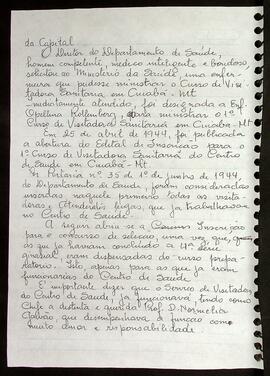 da Capital
O Diretor do Departamento de Saúde,
homem competente, médico inteligente e bondoso,
solicitou ao Ministério da Saúde uma enfer-
meira que pudesse ministrar o Curso de Visi-
tadora Sanitária em Cuiabá - MT
imediatamente atendido, foi designada a Enf.
para ministrar o 1º
Curso de Visitadora Sanitária em Cuiabá - MT.
Em 25 de abril de 1944, foi publicada
a abertura do Edital de Inscrição para o
1º Curso de Visitadora Sanitária do Centro
de Saúde em Cuiabá - MT.
Portaria nº 35 de 1º de junho de 1944,
do Departamento de Saúde, foram consideradas
inscritas naquele primeiro todas as visita
doras e Atendentes que já trabalhavam
no Centro de Saúde.
A seguir abriu-se a Inscrição
para o concurso de seleção, uma vez que,
as que já haviam concluído a 4ª série
ginasial, eram dispensadas do curso prepa-
ratório. Isto, apenas para as que já eram
funcionárias do Centro de Saúde.
É importante dizer que o Serviço de Visitadora
do Centro de Saúde, já funcionava, tendo como
Chefe a distinta e querida Prof. D. Normelia
Galvão, que desempenhava a função com
muito amor e responsabilidade